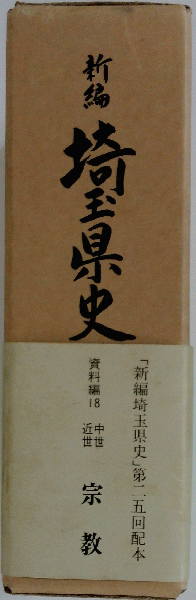 新編
埼玉県史
「新編埼玉県史」第二五回配本
資料編18
中世
近世
宗教